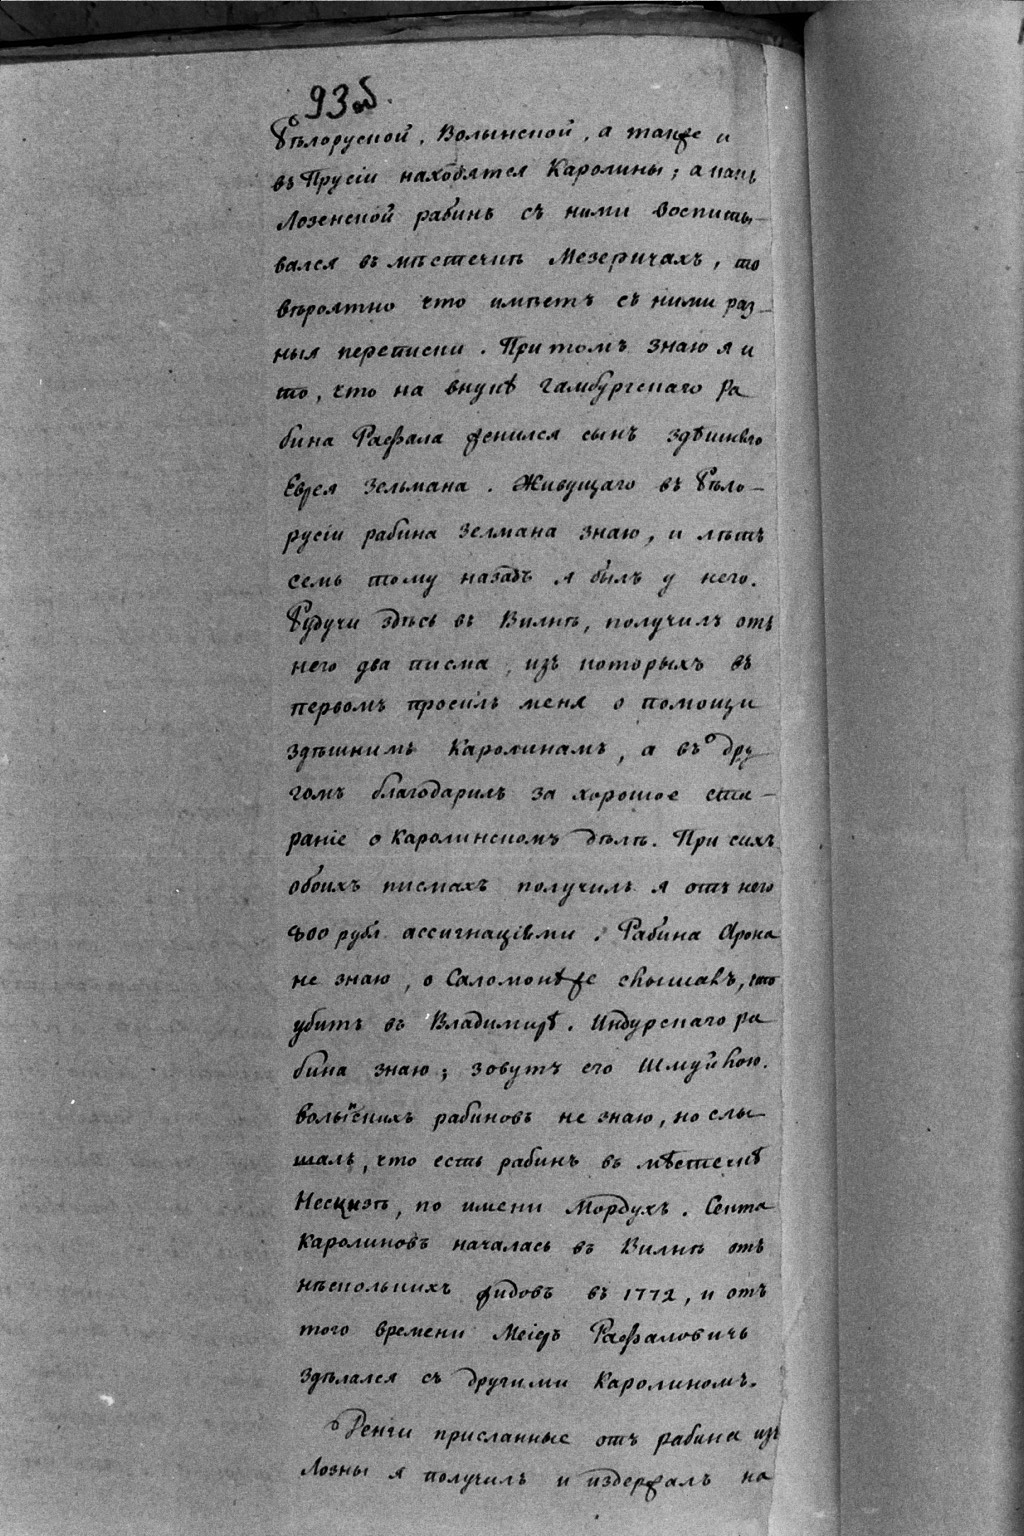 93 об.
Бѣлоруской, Волынской, а также и
въ Прусіи находятся Каролины; а какъ
Лозенской рабинъ съ ними воспиты-
вался въ мѣстечкѣ Мезеричахъ, то
вѣроятно что имѣетъ съ ними раз-
ныя переписки. При томъ знаю я и
то, что на внукѣ гамбургскаго ра
бина Рафала женился сынъ здѣшняго
Еврея Зельмана. Живущаго въ Бѣло-
русіи рабина Зелмана знаю, и лѣтъ
семь тому назадъ я былъ у него.
Будучи здѣсь въ Вилнѣ, получилъ отъ
него два писма, изъ которыхъ въ
первомъ просилъ меня о помощи
здѣшнимъ Каролинамъ, а въ дру
гомъ благодарилъ за хорошое ста-
раніе о Каролинскомъ дѣлѣ. При сихъ
обоихъ писмахъ получилъ я отъ него
800 рубл ассигнаціями. Рабина Арона
не знаю, о Саломонѣ же слышавъ, что
убитъ въ Владимирѣ. Индурскаго ра
бина знаю; зовутъ его Шмуйлою.
Волынскихъ рабиновъ не знаю, но слы
шалъ, что есть рабинъ въ мѣстечкѣ
Несцызѣ, по имени Мордухъ. Секта
Каролиновъ началась въ Вилнѣ отъ
нѣскольких жидовъ въ 1772, и отъ
того времени Меіеръ Рафаловичъ
здѣлался съ другими Каролиномъ.
Денги присланные отъ рабина изъ
Лозны я получилъ и издержалъ на